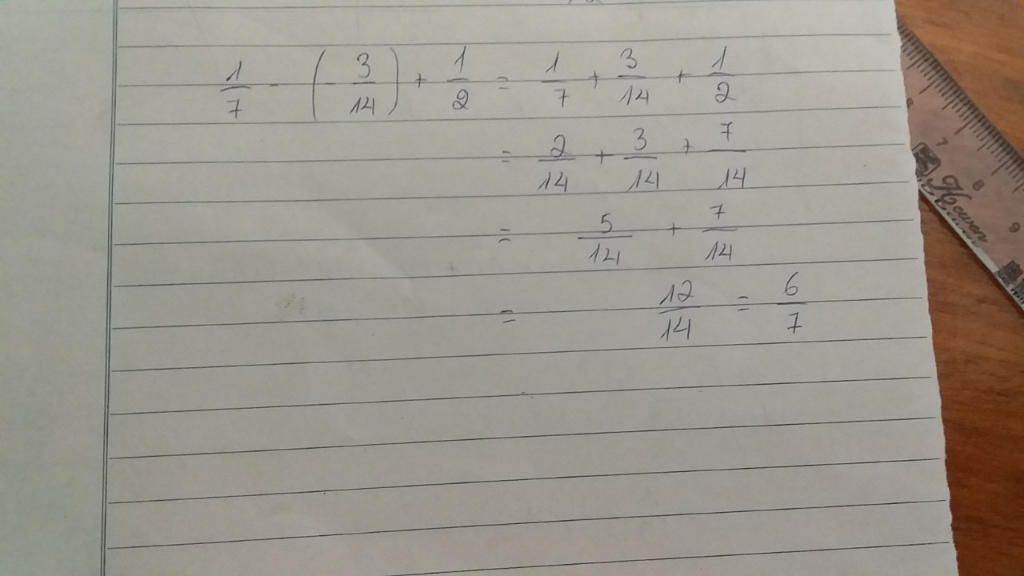 1/7 - (-3/14) + 1/2 = 1/7 + 3/14 + 1/2
= 2/14 + 3/14 + 7/14
= 5/14 + 7/14
= 12/14 = 6/7
7
8
9